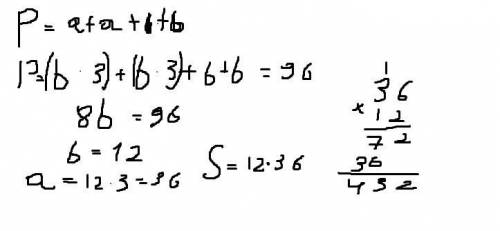 P = a+a+b+b
P=(b · 3)+(b · 3)+b+b = 96
8b = 96
b = 12
a = 12 · 3 = 36
S = 12 · 36
1
36
× 12
72
36
432